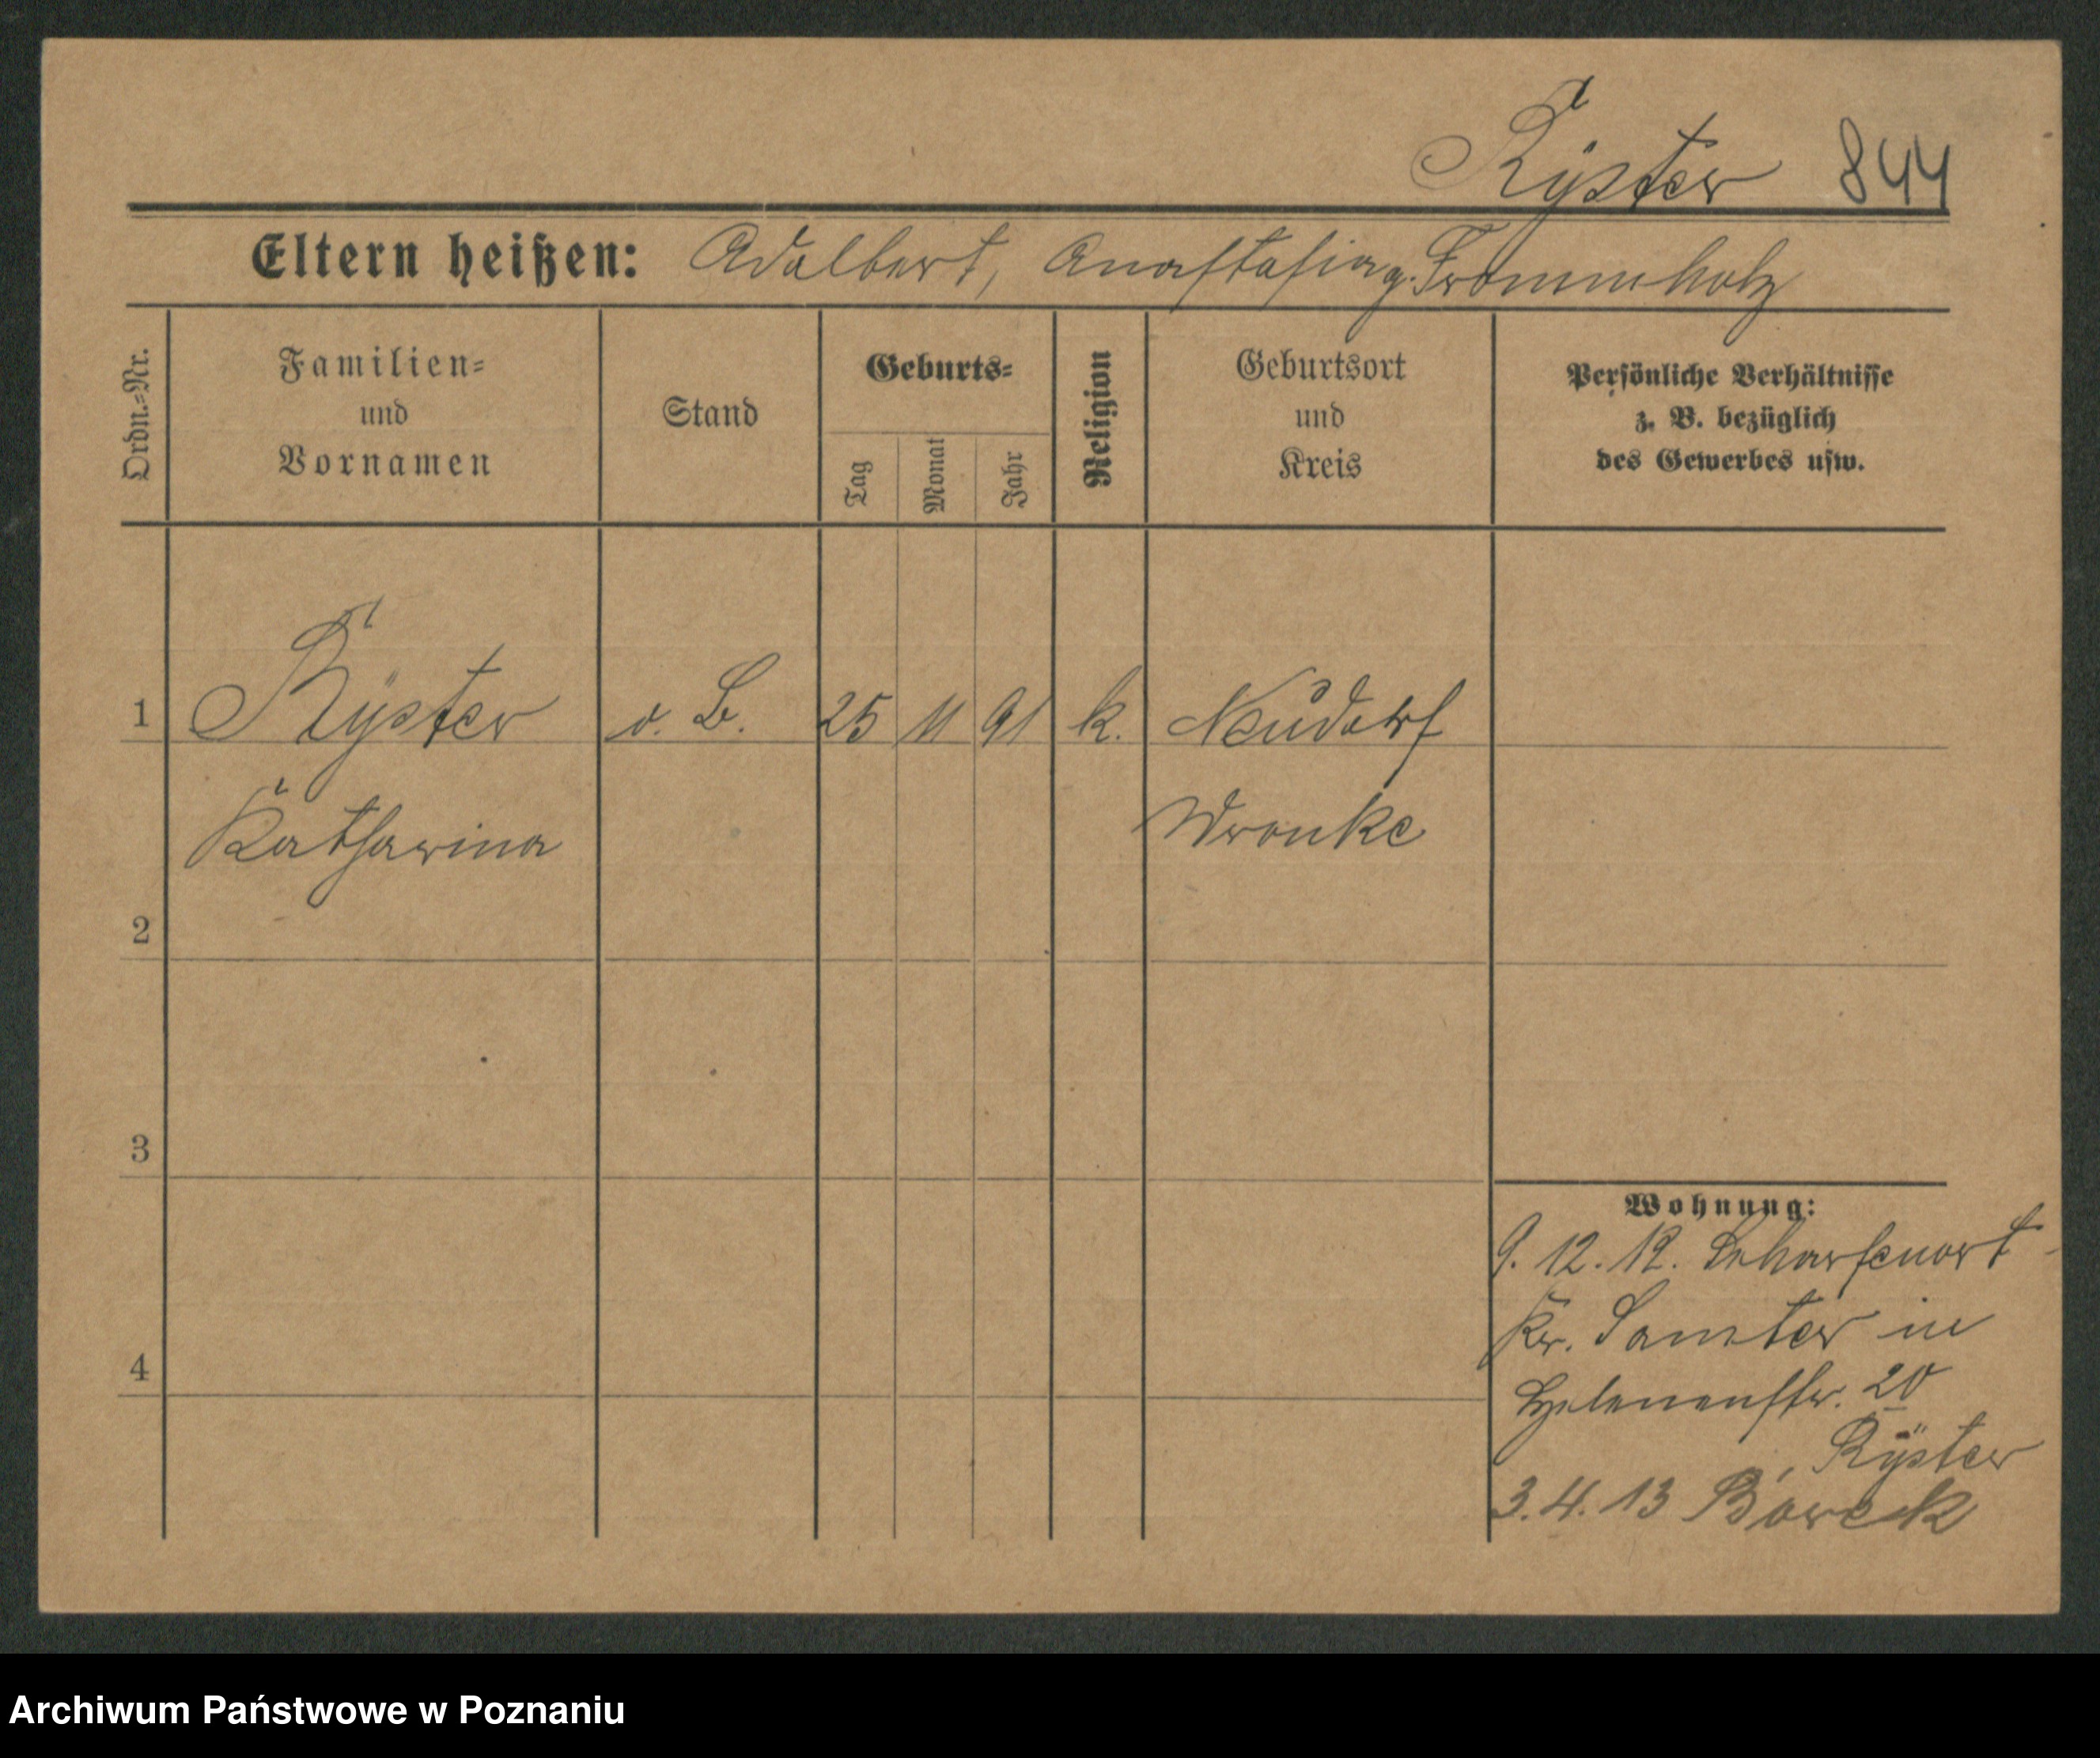 Ryster 844
Eltern heißen: Adalbert, Anastasia g. Frommholz
Ordn.-Nr.
Familien-
und
Vornamen
Stand
Geburts-
Tag
Monat
Jahr
Religion
Geburtsort
und
Kreis
Persönliche Verhältnisse
z. B. bezüglich
des Gewerbes usw.
1 Ryster o. B. 25 11 91 k. Neudorf
Katharina Wronke
2
3
4
Wohnung:
9. 12. 12. Scharfenort
Kr. Samter in
Helenenstr. 20
Ryster
3. 4. 13 Boreck
Archiwum Państwowe w Poznaniu